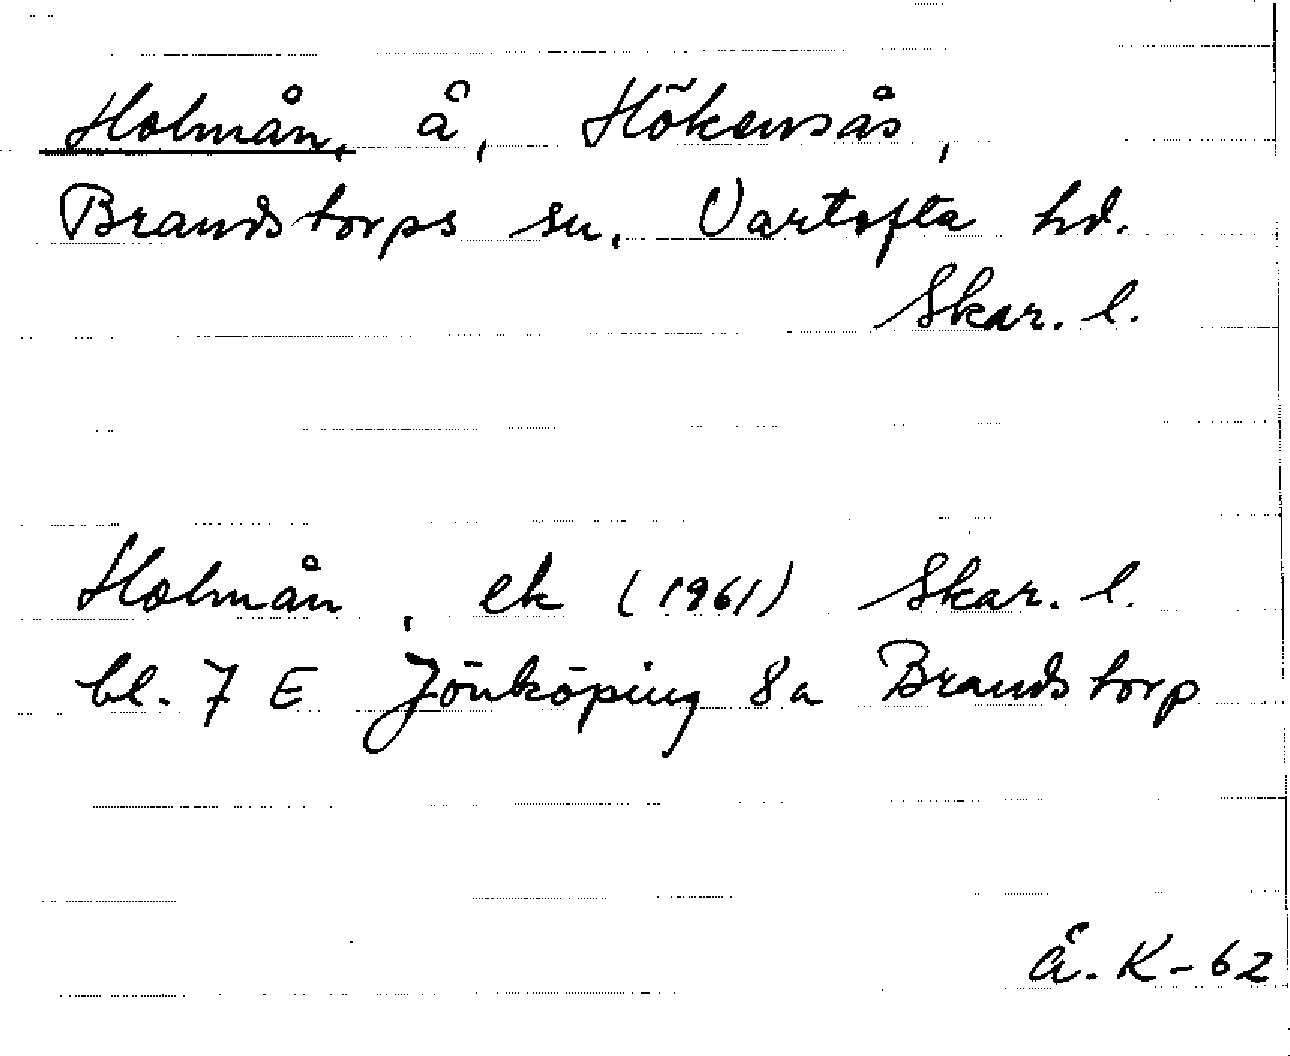 Holmån, å, Hökensås,
Brandstorps sn. Vartofta hd.
Skar. l.
Holmån, ek (1961) Skar. l.
bl. 7 E Jönköping 8a Brandstorp
Å. K-62